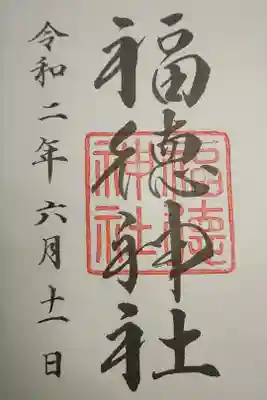 福徳神社
令和二年六月十一日
福徳
神社